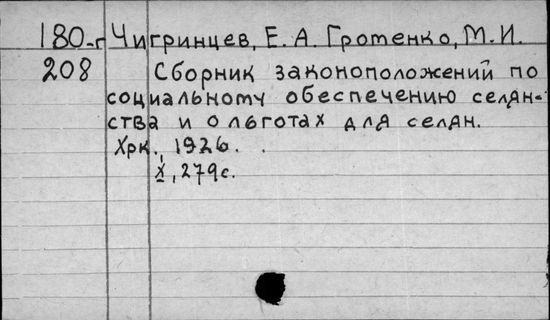 180-г Чигринцев, Е. А. Гротенко, М. И.
208 Сборник законоположений по
социальному обеспечению селян-
ства и о льготах для селян.
Хрк., 1926.
X, 279 с.